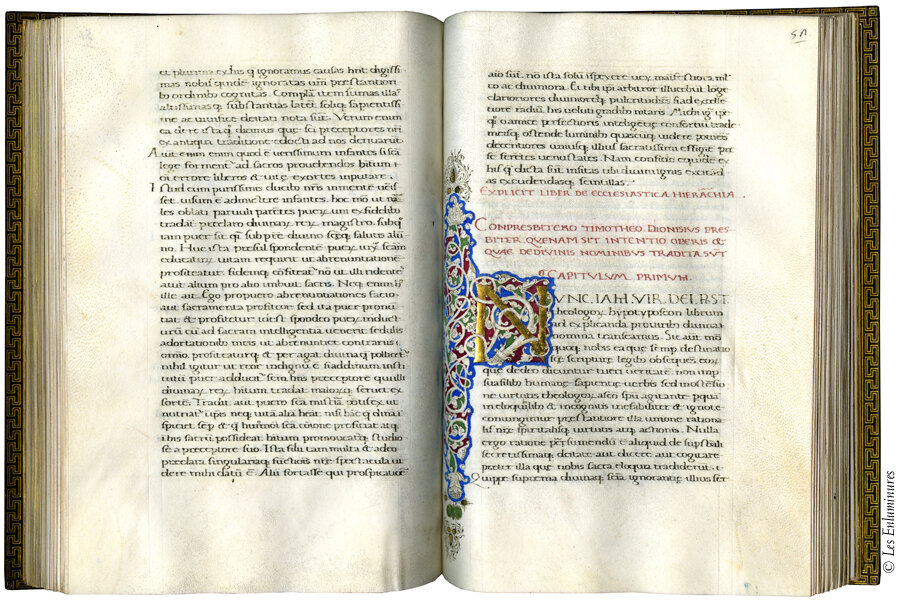 et plurima ex his q ignoramus causas hnt digissi-
mas nobis quidē ignoratas um prestantiori
to ordinib cognitas. Complā item sumas illa
altissimasq substantias latēt soluq sapientissi
me ac uiuifice deitati nota sūt. Verum enim
ea de re ista q dicimus que sci preceptores nri
ex antiqua traditione edocti ad nos deriuarūt
Auit enim enim quod e uerissimum infantes si scā
lege forment ad sacros prouehendos hitum
oī errore liberos & uite exortes impurare.
Istud cum purissimis ducib nris in mente ueīs
set. uisum e admittere infantes. hoc mō ut na
les oblati paruuli parētes puex um ex fidelib
tradāt preclaro diuinax rex magistro. subq
iam puer sic q subpre diuino seq salutis alū
no. Huic ista presul spondente puex ur scām
educatur uitam requirit ut abrenuntiatione
profiteatur fidemq cōfiteat no ut illi ridente
auit alium pro alio imbuit sacris. Neq enim
ille ait. Ego pro puero abrenuntiationes facio
aut sacramenta profiteor sed ita puer pronū
tiat & profitetur
uirū cū ad sacram intelligentiā uenerit sedulis
adortationib meis ut abrenuntiet contrariis
omīo profiteaturq & per agat diuinaq pollicet
nihil igitur ut reor indignū e si ad diuinum insti
tutū puer adducit sem his preceptore qui illi
diuinax rex hitum tradat maiorq seruet ex
sorte. Tradit aut puero scā mistiā
nutriat ips neq uitā aliā heat nisi hac q diuina
spicit sep & q humōi scā cōione proficiat atq
i his sacris possideat hitum promoueatq studio
se a preceptore suo Ista fili tam multa & adeo
preclara singularisq fūctiōis nre spectacula ui
dere mihi datū e Alii fortasse qui prospicatior
5n
aio sūt. nō ista solū ispexere uex maifestiora ml
to ac diuiniora. Et tibi ipi arbitror illucebūt loge
clariores diuinioresq pulcritudīes si ad excelle
tiore radiū. his uelut gradib nitaris. Mich ig ipe
q o amice perfectioris intelligētie consortiū trade
meisq ostende luminib quascuq uidere poteris
decentiores uniusq illius sacratissima effigie pre
se ferētes uenustates. Nam confido equide ex
his q dicta sunt insitas tibi diuini ignis excitad
as excudendasq scintillas.
EXPLICIT LIBER DE ECCLESIASTICA HIERĀCHIA
CONPRESBITERO TIMOTHEO. DIONISIUS PRES
BITER QUENAM SIT INTENTIO OPERIS &
QUAE DE DIVINIS NOMINIBUS TRADITA SŪT
CAPITULUM PRIMUM.
NUNC IAM VIR DEI PST.
theologox hypotyposeon librum
ad explicanda pro uirib diuinax
nomina transeamus. Sit aut mō
quoq nobis eaque semp destinatio
se scripture legib obsequēs
que de deo dicuntur tueri ueritatē. non imp
suasilib humane sapientie uerbis sed in ostēsio
ne uirtutis theologox. quā spū agitante. p quā
in eloquilib & incognitis ineffabiliter & ignote
coniungimur prestantiore illa unione rationa
lis nre spiritalisq uirtutis atq actionis. Nulla
ergo ratione psumendū e aliquid de supstāli
secretissimaq deitate aut dicere aut cogitare
preter illa que nobis sacra eloquia tradiderūt.
Quippe suprema diuinaq scia ignorantie illius sup
© Les Enluminures